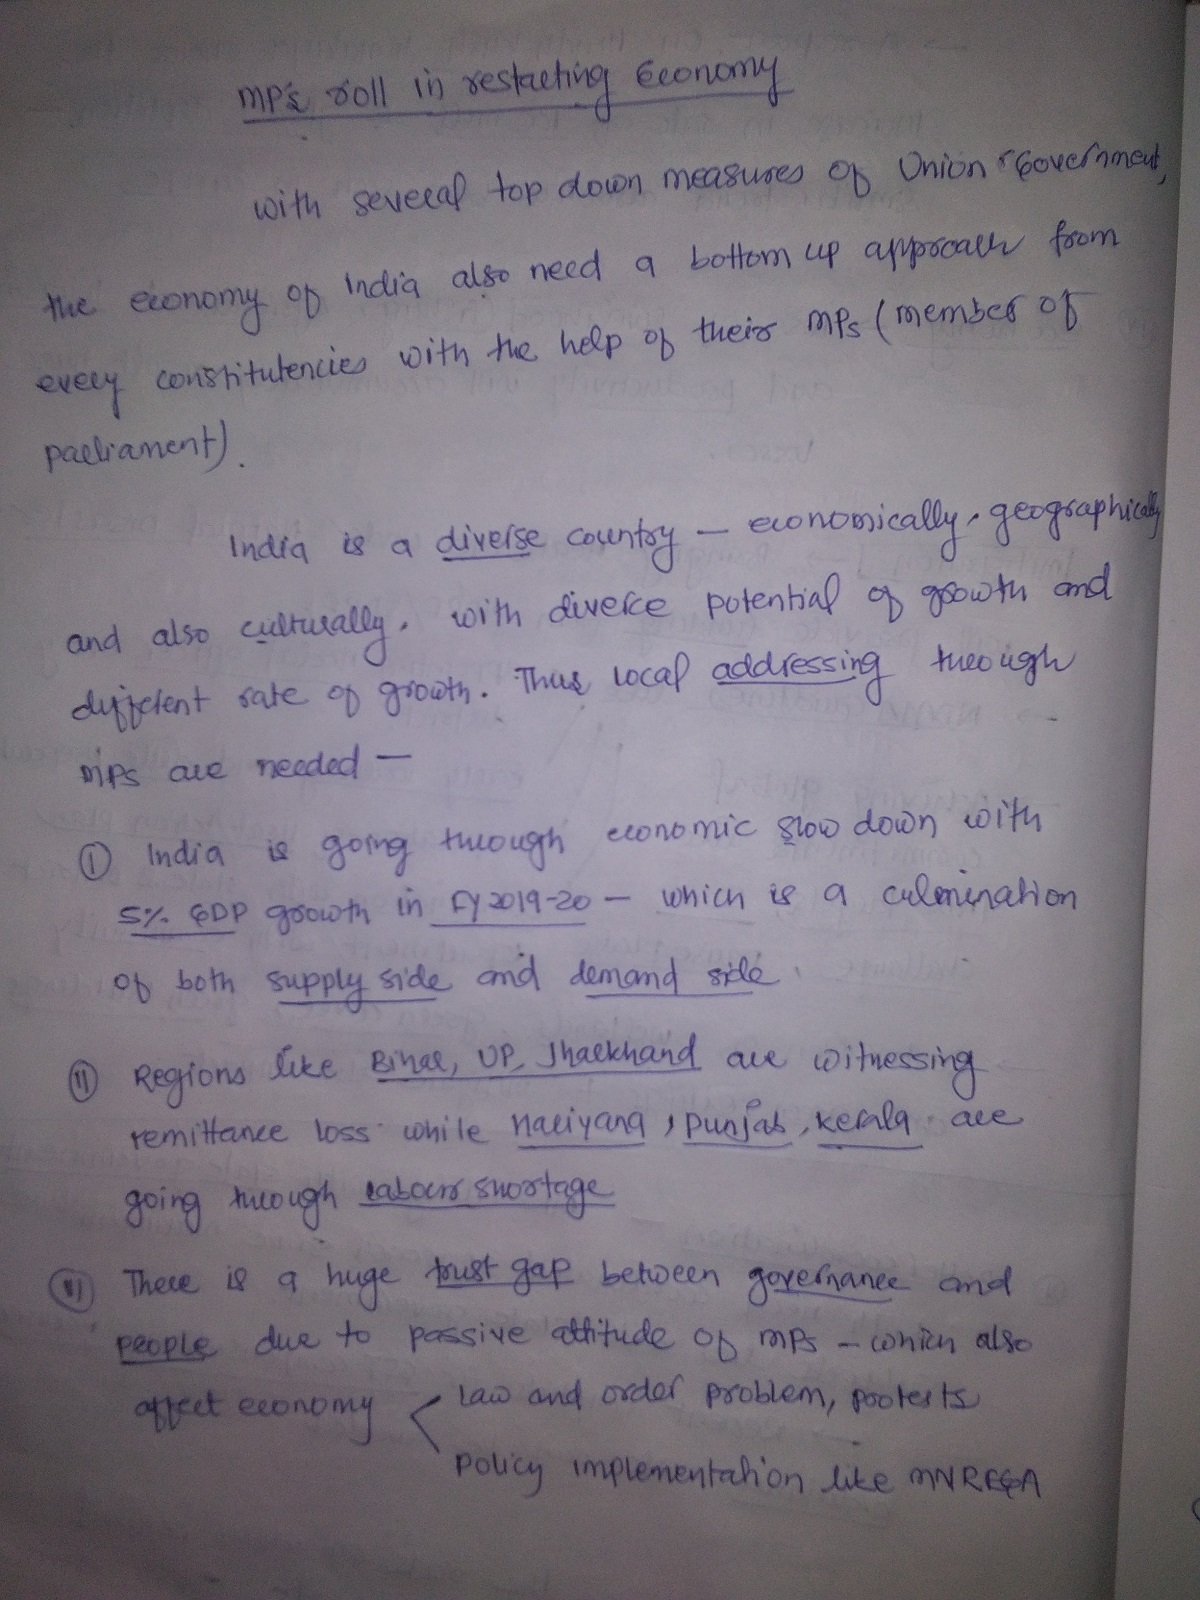 MP's roll in restarting Economy
with several top down measures of Union Government,
the economy of India also need a bottom up approach from
every constitutencies with the help of their MPs (member of
parliament).
India is a diverse country — economically, geographically
and also culturally. with diverse potential of growth and
different rate of growth. Thus local addressing through
MPs are needed —
① India is going through economic slow down with
5% GDP growth in FY 2019-20 — which is a culmination
of both supply side and demand side.
⑪ Regions like Bihar, UP, Jharkhand are witnessing
remittance loss while Hariyana, Punjab, Kerala are
going through labour shortage
There is a huge trust gap between governance and
people due to passive attitude of MPs — which also
affect economy < law and order problem, protests
policy implementation like MNREGA